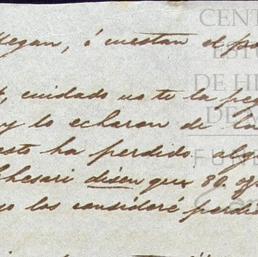 llegan, ó cuestan el po
, cuidado no te la peg
y lo echaron de la
esto ha perdido alg
disen que 80.
o los consideré perdi
CENT
EST
DE H
DE M
FUN